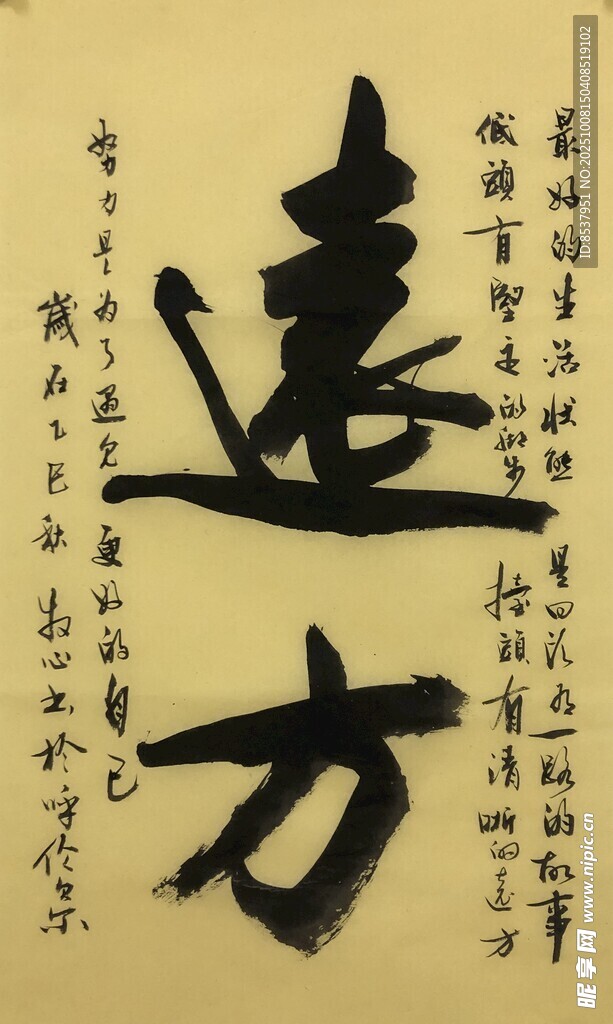 最好的生活状態 是回头有一路的故事
低頭有堅定的脚步 擡頭有清晰的远方
遠方
努力是为了遇见 更好的自己
歲在乙巳秋 牧心书於呼伦贝尔
ID:8537951 NO:20251008150408519102
昵享网 www.nipic.cn